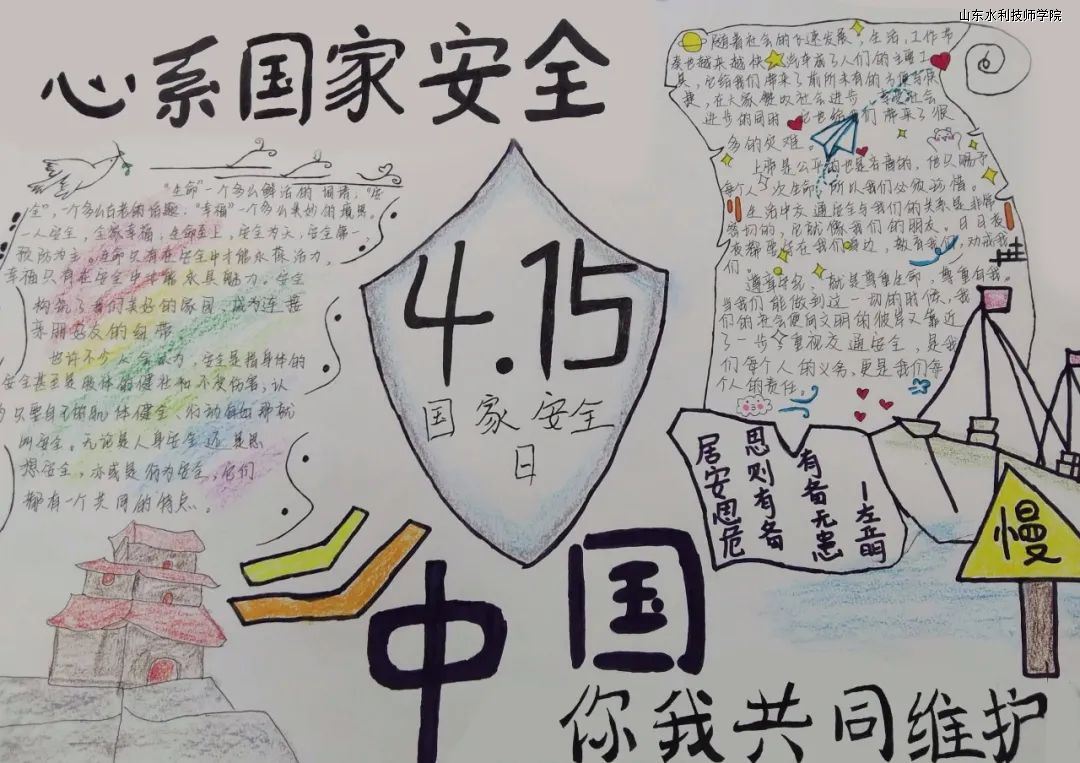 山东水利技师学院
心系国家安全
“生命”一个多么鲜活的词语，“安
全”，一个多么古老的话题，“幸福”一个多么美妙的境界。
一人安全，全家幸福，生命至上，安全为天，安全第一，
预防为主。生命只有在安全中才能永葆活力，
幸福只有在安全中才能永具魅力。安全
构筑了我们美好的家园，成为连接
亲朋好友的纽带
也许不少人会认为，安全是指身体的
安全甚至是肢体的健壮和不受伤害，认
为只要自己的肌体健全、行动自如那就
叫安全。无论是人身安全还是思
想安全，亦或是行为安全，它们
都有一个共同的特点。
4.15
国家安全
日
随着社会的飞速发展，生活，工作节
奏也越来越快，汽车成了人们的主要工
具，它给我们带来了前所未有的方便
捷，在大家赞叹社会进步
进步的同时，它也给我们带来了很
多的灾难。
上帝是公平的也是吝啬的，他只赐予
每个人一次生命，所以我们必须珍惜。
生活中交通安全与我们的关系是非常
密切的，它就像我们的朋友。日日夜
夜都要活在我们身边，教育我们，劝戒我
们。
遵章守纪，就是尊重生命，尊重自我。
当我们能做到这一切的时候，我
们的社会便向文明的彼岸又靠近
了一步，重视交通安全，是我
们每个人的义务，更是我们每
个人的责任。
居安思危
思则有备
有备无患
—左丘明
慢
中国
你我共同维护